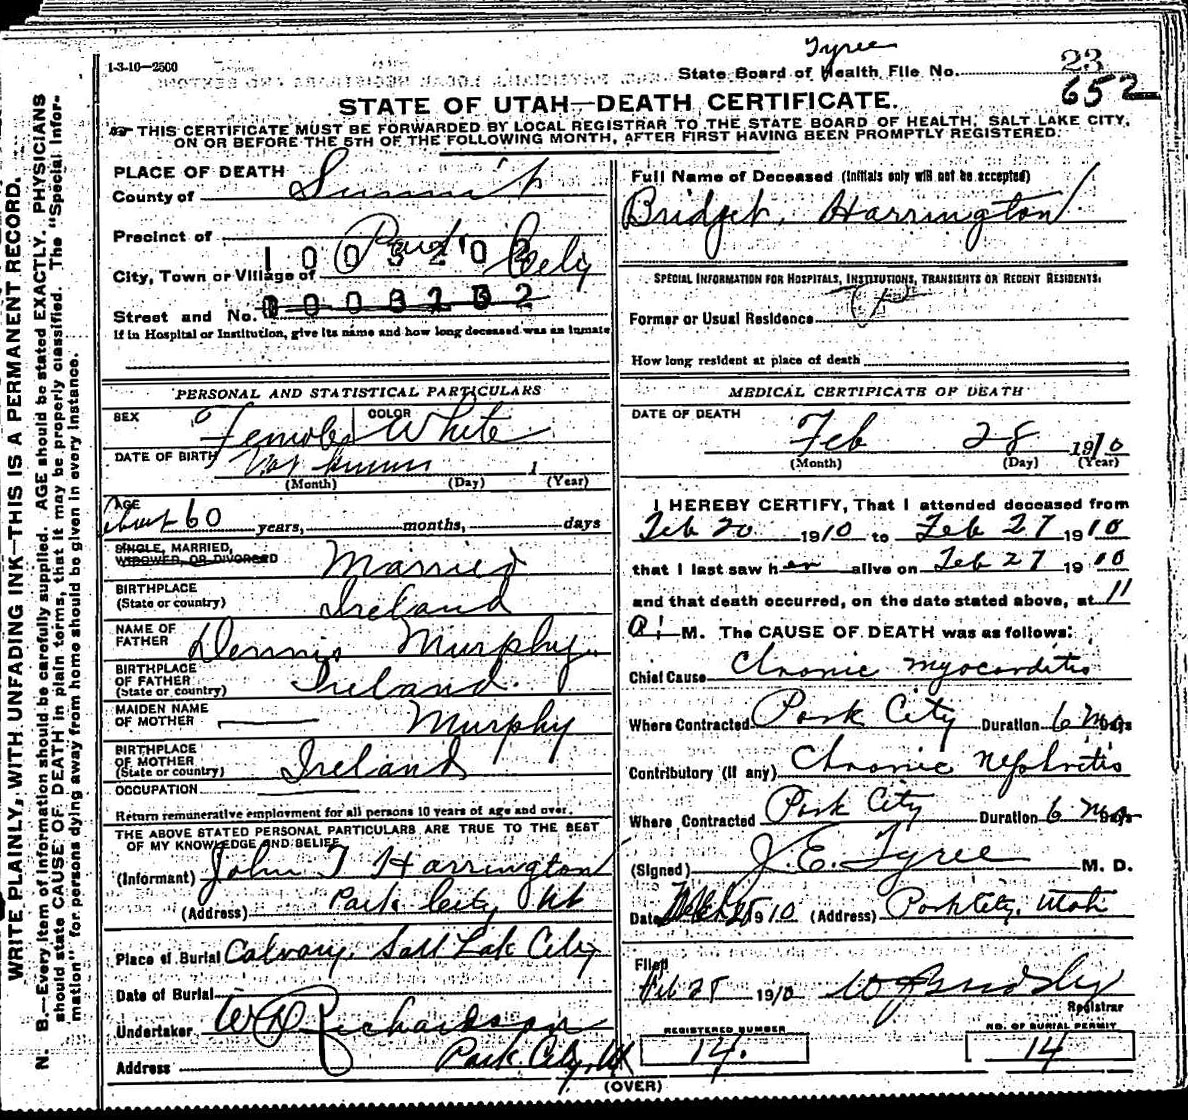 1-3-10—2500
Tyree
State Board of Health File No. 23
652
STATE OF UTAH—DEATH CERTIFICATE.
THIS CERTIFICATE MUST BE FORWARDED BY LOCAL REGISTRAR TO THE STATE BOARD OF HEALTH, SALT LAKE CITY,
ON OR BEFORE THE 5TH OF THE FOLLOWING MONTH, AFTER FIRST HAVING BEEN PROMPTLY REGISTERED.
WRITE PLAINLY, WITH UNFADING INK—THIS IS A PERMANENT RECORD.
N. B.—Every item of information should be carefully supplied. AGE should be stated EXACTLY. PHYSICIANS
should state CAUSE OF DEATH in plain terms, that it may be properly classified. The "Special Infor-
mation" for persons dying away from home should be given in every instance.
PLACE OF DEATH
County of Summit
Precinct of
City, Town or Village of Park City
1003202
Street and No.
If in Hospital or Institution, give its name and how long deceased was an inmate
PERSONAL AND STATISTICAL PARTICULARS
SEX Female COLOR White
DATE OF BIRTH
(Month) (Day) 1 (Year)
AGE
about 60 years, months, days
SINGLE, MARRIED,
WIDOWED, OR DIVORCED Married
BIRTHPLACE
(State or country) Ireland
NAME OF
FATHER Dennis Murphy
BIRTHPLACE
OF FATHER
(State or country) Ireland.
MAIDEN NAME
OF MOTHER — Murphy
BIRTHPLACE
OF MOTHER
(State or country) Ireland
OCCUPATION
Return remunerative employment for all persons 10 years of age and over.
THE ABOVE STATED PERSONAL PARTICULARS ARE TRUE TO THE BEST
OF MY KNOWLEDGE AND BELIEF
(Informant) John T Harrington
(Address) Park City Ut
Place of Burial Calvary. Salt Lak City
Date of Burial
Undertaker W D Richardson
Address Park City, Ut
Full Name of Deceased (Initials only will not be accepted)
Bridget Harrington
SPECIAL INFORMATION FOR HOSPITALS, INSTITUTIONS, TRANSIENTS OR RECENT RESIDENTS.
Former or Usual Residence
How long resident at place of death
MEDICAL CERTIFICATE OF DEATH
DATE OF DEATH
Feb 28 1910
(Month) (Day) (Year)
I HEREBY CERTIFY, That I attended deceased from
Feb 20 1910 to Feb 27 1910
that I last saw her alive on Feb 27 1910
and that death occurred, on the date stated above, at 11
a. M. The CAUSE OF DEATH was as follows:
Chief Cause Chronic myocarditis
Where Contracted Park City Duration 6 Mos
Contributory (if any) Chronic Nephritis
Where Contracted Park City Duration 6 Mos
(Signed) J. E. Tyree M. D.
Dated 1910 (Address) Park City, Utah
Filed
Feb 28 1910
Registrar
REGISTERED NUMBER
14.
NO. OF BURIAL PERMIT
14
(OVER)